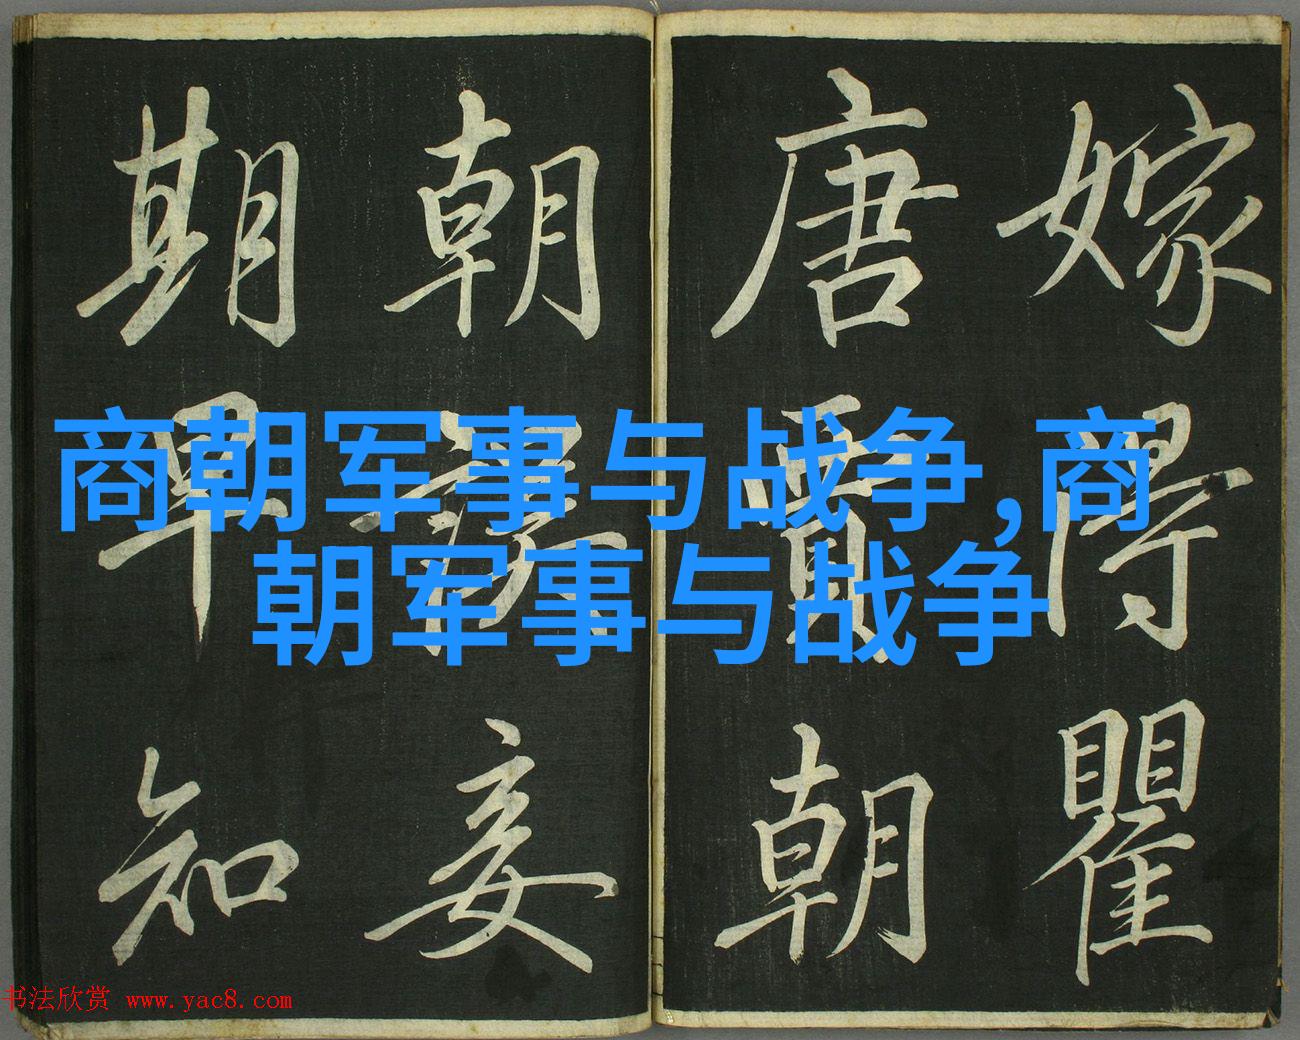 嫁得瞿
唐賈朝
朝誤妾
期早知
商朝军事与战争,商
朝军事与战争
书法欣赏 www.yac8.com